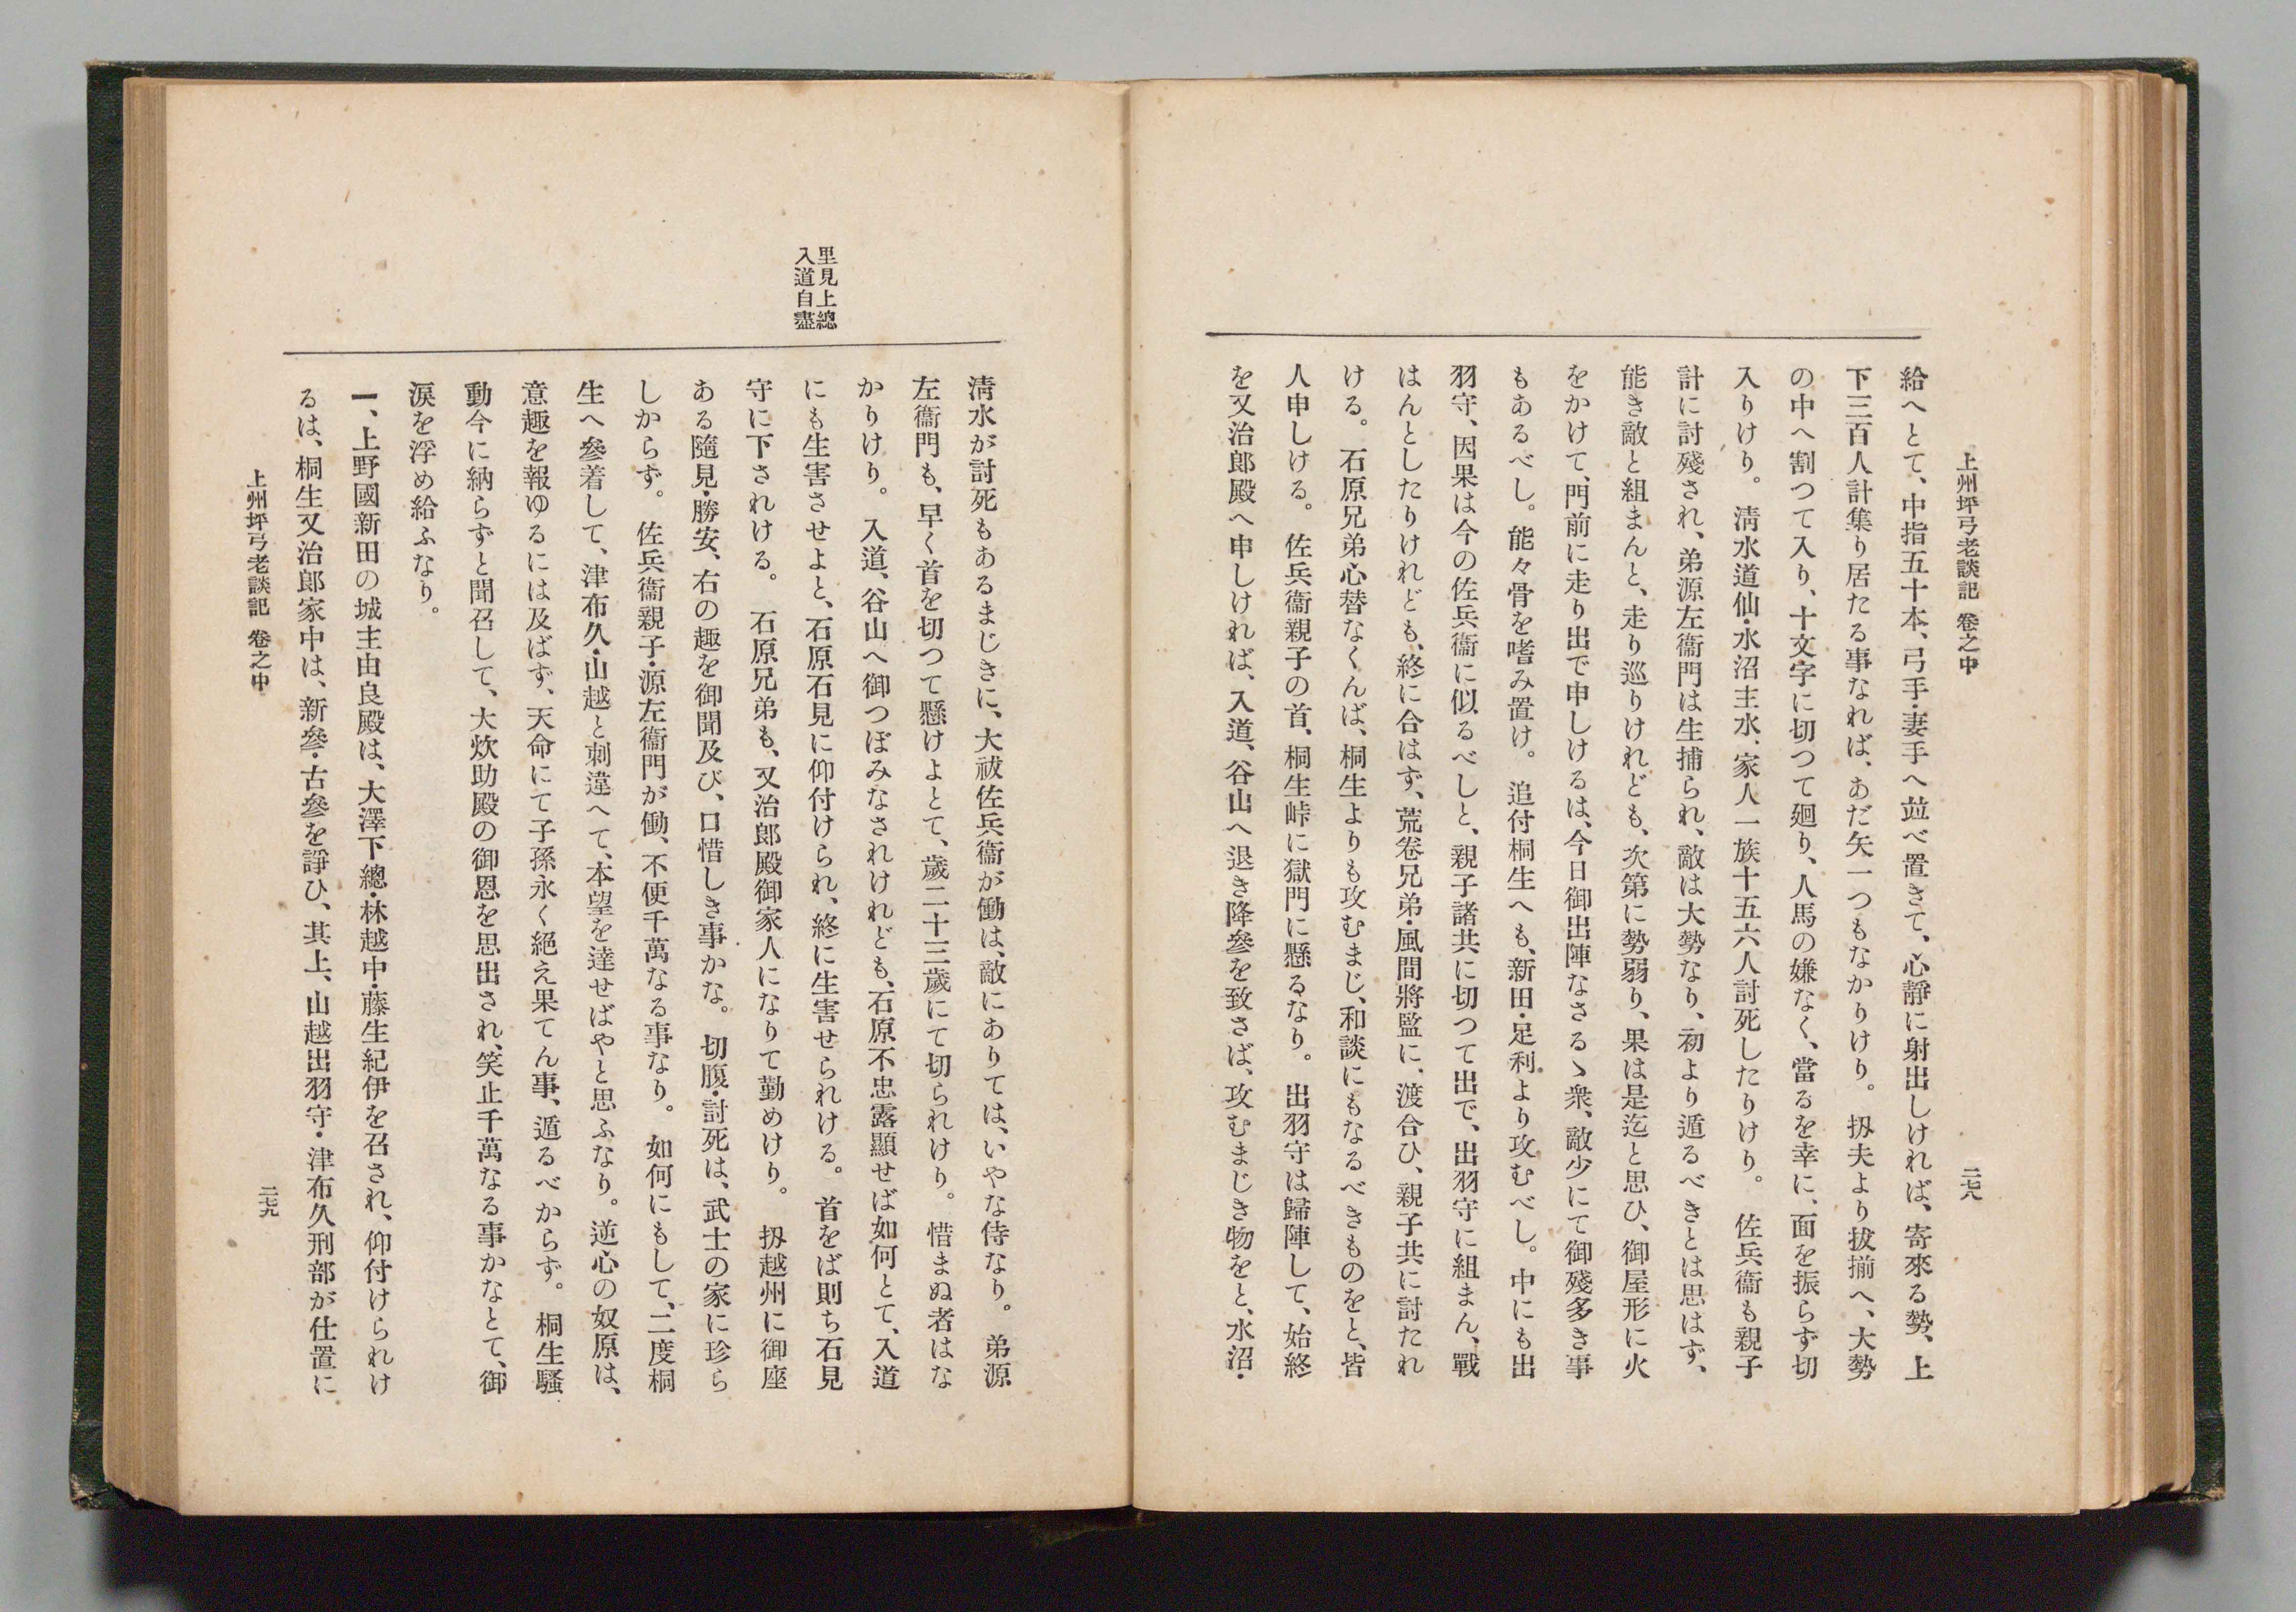 上州坪弓老談記　卷之中
二七八
給へとて、中指五十本、弓手・妻手へ並べ置きて、心靜に射出しければ、寄來る勢、上
下三百人計集り居たる事なれば、あだ矢一つもなかりけり。扨夫より拔揃へ、大勢
の中へ割つて入り、十文字に切つて廻り、人馬の嫌なく、當るを幸に、面を振らず切
入りけり。淸水道仙・水沼主水・家人一族十五六人討死したりけり。佐兵衞も親子
計に討殘され、弟源左衞門は生捕られ、敵は大勢なり、初より遁るべきとは思はず、
能き敵と組まんと、走り巡りけれども、次第に勢弱り、果は是迄と思ひ、御屋形に火
をかけて、門前に走り出で申しけるは、今日御出陣なさるゝ衆、敵少にて御殘多き事
もあるべし。能々骨を嗜み置け。追付桐生へも、新田・足利より攻むべし。中にも出
羽守、因果は今の佐兵衞に似るべしと、親子諸共に切つて出で、出羽守に組まん、戰
はんとしたりけれども、終に合はず、荒卷兄弟・風間將監に、渡合ひ、親子共に討たれ
ける。石原兄弟心替なくんば、桐生よりも攻むまじ、和談にもなるべきものをと、皆
人申しける。佐兵衞親子の首、桐生峠に獄門に懸るなり。出羽守は歸陣して、始終
を又治郎殿へ申しければ、入道、谷山へ退き降參を致さば、攻むまじき物をと、水沼・
里見上總
入道自盡
淸水が討死もあるまじきに、大祓佐兵衞が働は、敵にありては、いやな侍なり。弟源
左衞門も、早く首を切つて懸けよとて、歲二十三歲にて切られけり。惜まぬ者はな
かりけり。入道、谷山へ御つぼみなされけれども、石原不忠露顯せば如何とて、入道
にも生害させよと、石原石見に仰付けられ、終に生害せられける。首をば則ち石見
守に下されける。石原兄弟も、又治郎殿御家人になりて勤めけり。扨越州に御座
ある隨見・勝安、右の趣を御聞及び、口惜しき事かな。切腹・討死は、武士の家に珍ら
しからず。佐兵衞親子・源左衞門が働、不便千萬なる事なり。如何にもして、二度桐
生へ參着して、津布久・山越と刺違へて、本望を達せばやと思ふなり。逆心の奴原は、
意趣を報ゆるには及ばず、天命にて子孫永く絕え果てん事、遁るべからず。桐生騷
動今に納らずと聞召して、大炊助殿の御恩を思出され、笑止千萬なる事かなとて、御
淚を浮め給ふなり。
一、上野國新田の城主由良殿は、大澤下總・林越中・藤生紀伊を召され、仰付けられけ
るは、桐生又治郎家中は、新參・古參を諍ひ、其上、山越出羽守・津布久刑部が仕置に
上州坪弓老談記　卷之中
二七九